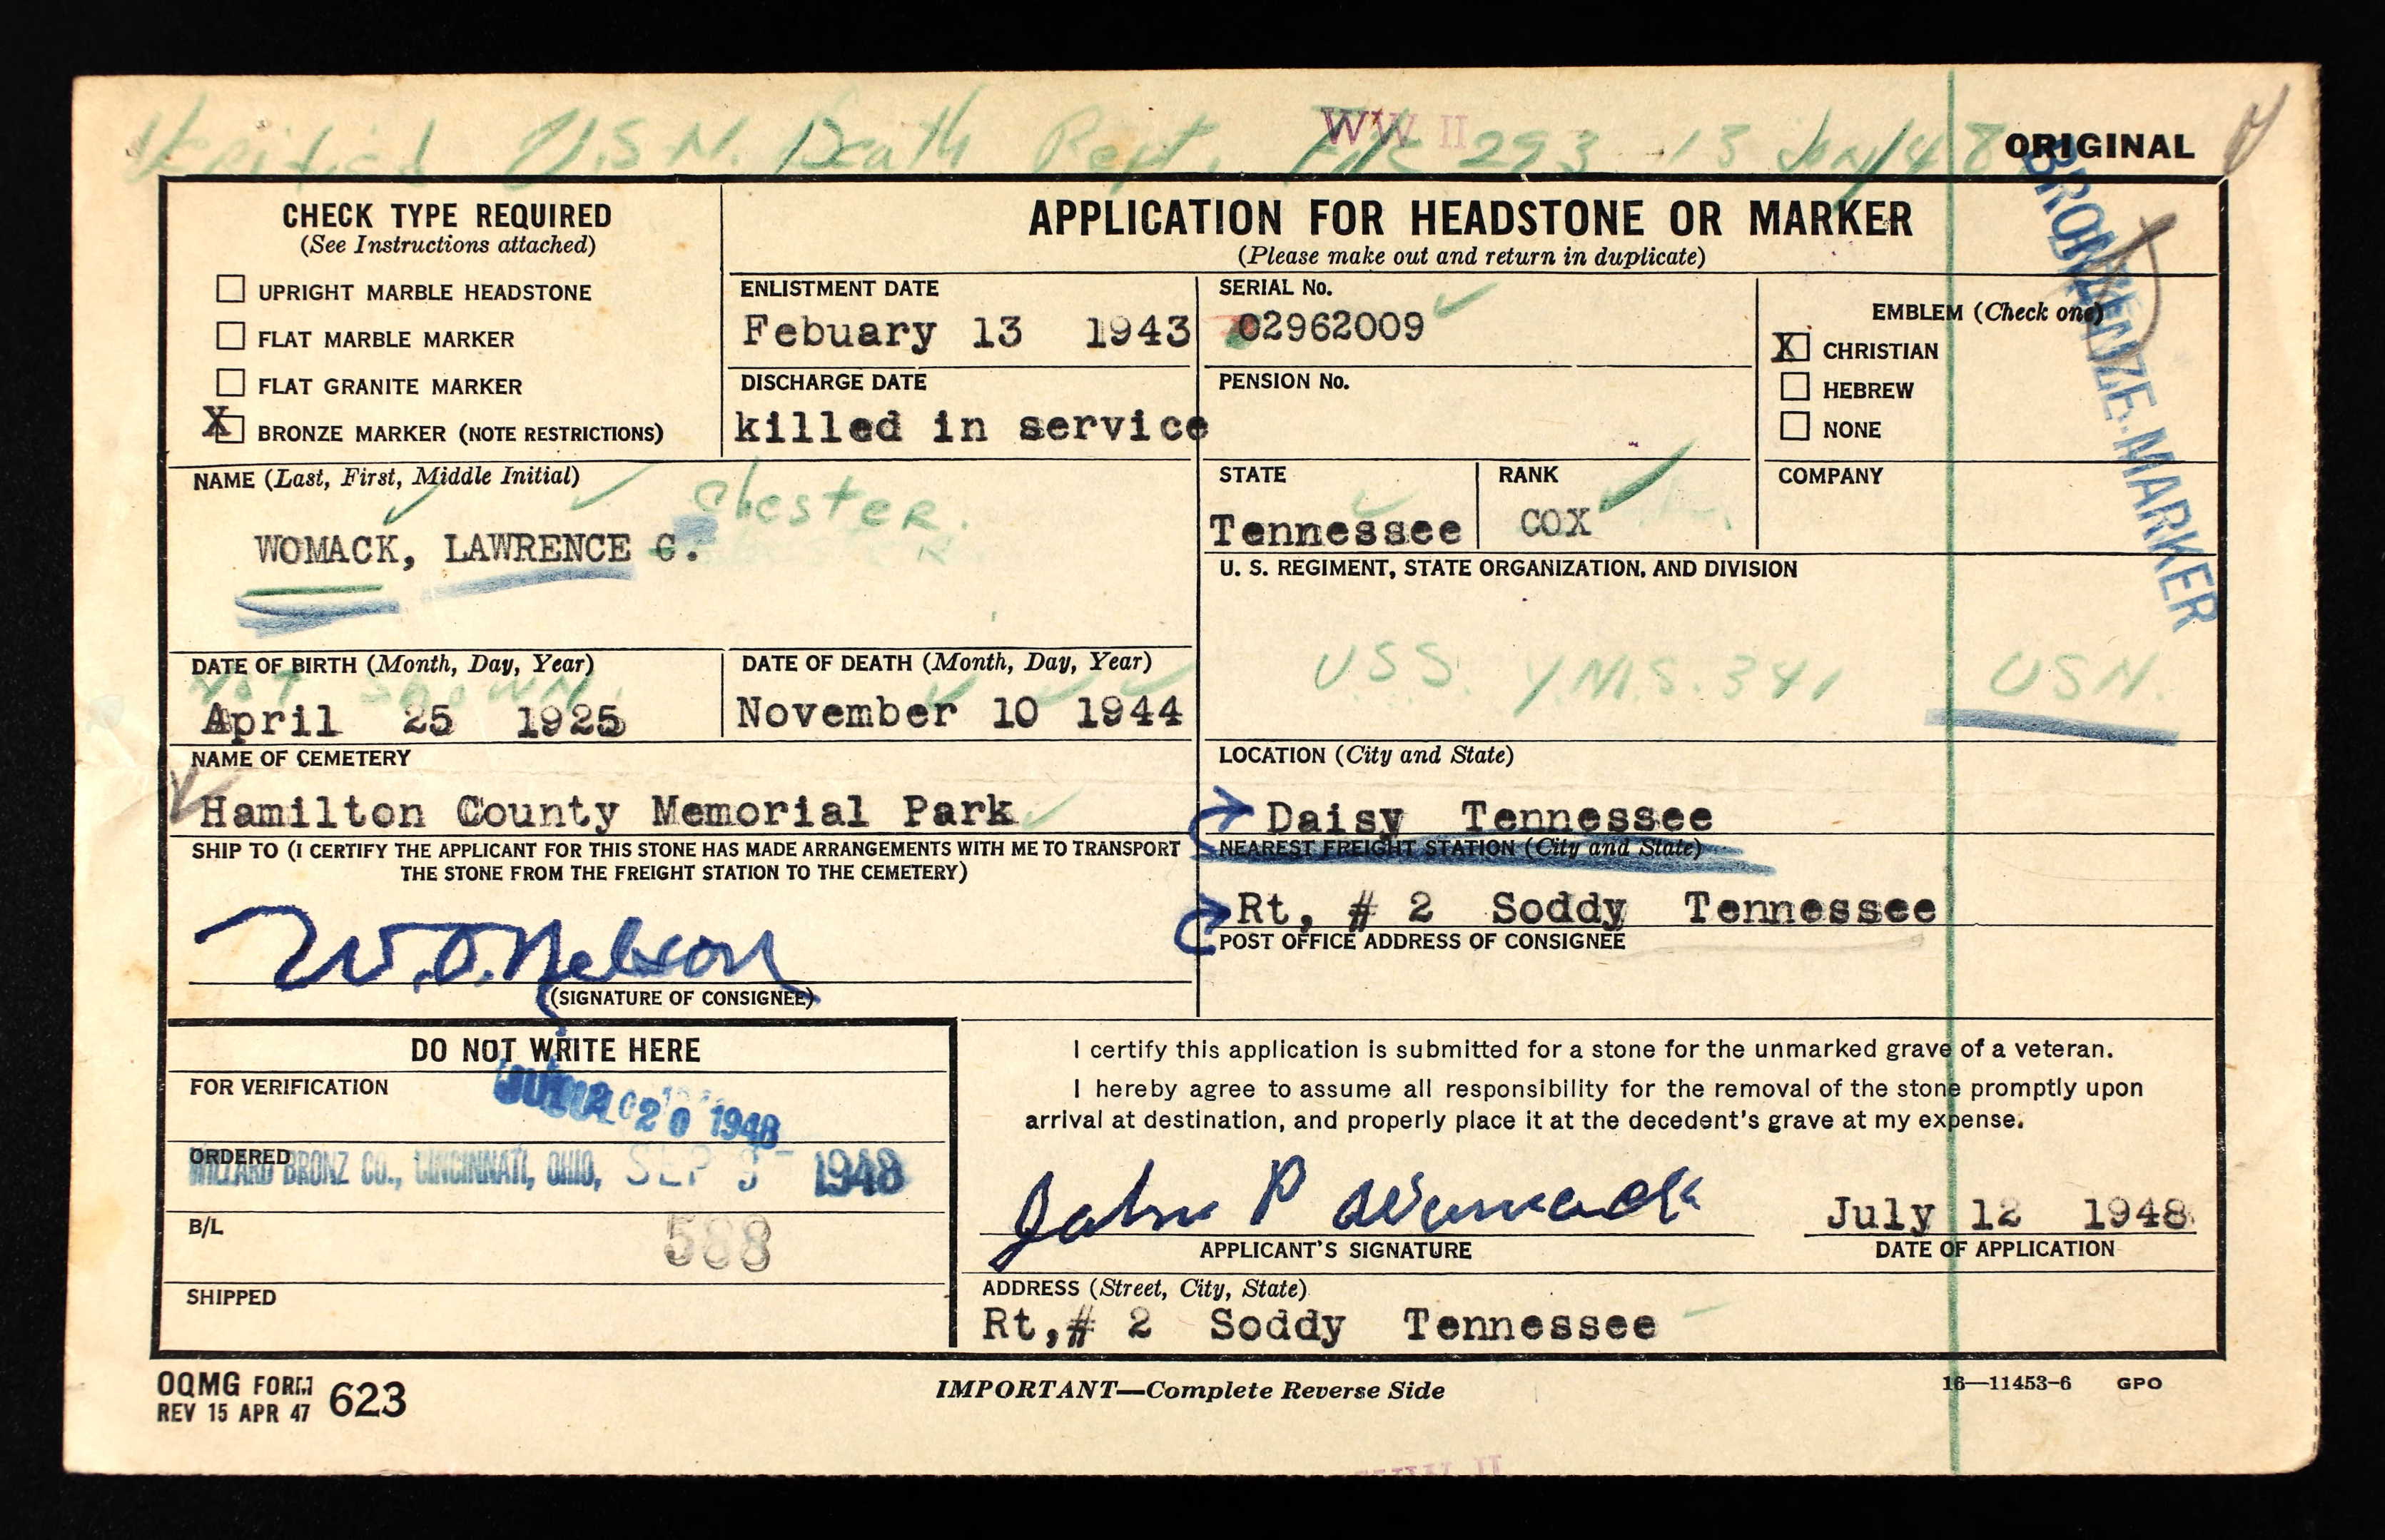 Verified U.S.N. Death Rept. File 293 13 Jan/48
WW II
ORIGINAL
BRONZE MARKER
CHECK TYPE REQUIRED
(See Instructions attached)
UPRIGHT MARBLE HEADSTONE
FLAT MARBLE MARKER
FLAT GRANITE MARKER
X BRONZE MARKER (NOTE RESTRICTIONS)
APPLICATION FOR HEADSTONE OR MARKER
(Please make out and return in duplicate)
ENLISTMENT DATE
Febuary 13 1943
DISCHARGE DATE
killed in service
SERIAL No.
02962009
PENSION No.
EMBLEM (Check one)
X CHRISTIAN
HEBREW
NONE
NAME (Last, First, Middle Initial)
Chester.
WOMACK, LAWRENCE C.
STATE
Tennessee
RANK
COX
COMPANY
U. S. REGIMENT, STATE ORGANIZATION, AND DIVISION
U.S.S. Y.M.S. 341 USN.
DATE OF BIRTH (Month, Day, Year)
NOT SHOWN
April 25 1925
DATE OF DEATH (Month, Day, Year)
November 10 1944
NAME OF CEMETERY
Hamilton County Memorial Park
LOCATION (City and State)
Daisy Tennessee
SHIP TO (I CERTIFY THE APPLICANT FOR THIS STONE HAS MADE ARRANGEMENTS WITH ME TO TRANSPORT
THE STONE FROM THE FREIGHT STATION TO THE CEMETERY)
W.O. Nelson
(SIGNATURE OF CONSIGNEE)
NEAREST FREIGHT STATION (City and State)
Rt, # 2 Soddy Tennessee
POST OFFICE ADDRESS OF CONSIGNEE
DO NOT WRITE HERE
FOR VERIFICATION
20 1948
ORDERED
WILLARD BRONZ CO., CINCINNATI, OHIO, SEP 9 1948
B/L
588
SHIPPED
I certify this application is submitted for a stone for the unmarked grave of a veteran.
I hereby agree to assume all responsibility for the removal of the stone promptly upon
arrival at destination, and properly place it at the decedent's grave at my expense.
John P Womack
APPLICANT'S SIGNATURE
July 12 1948
DATE OF APPLICATION
ADDRESS (Street, City, State)
Rt,# 2 Soddy Tennessee
OQMG FORM 623
REV 15 APR 47
IMPORTANT—Complete Reverse Side
16—11453-6 GPO